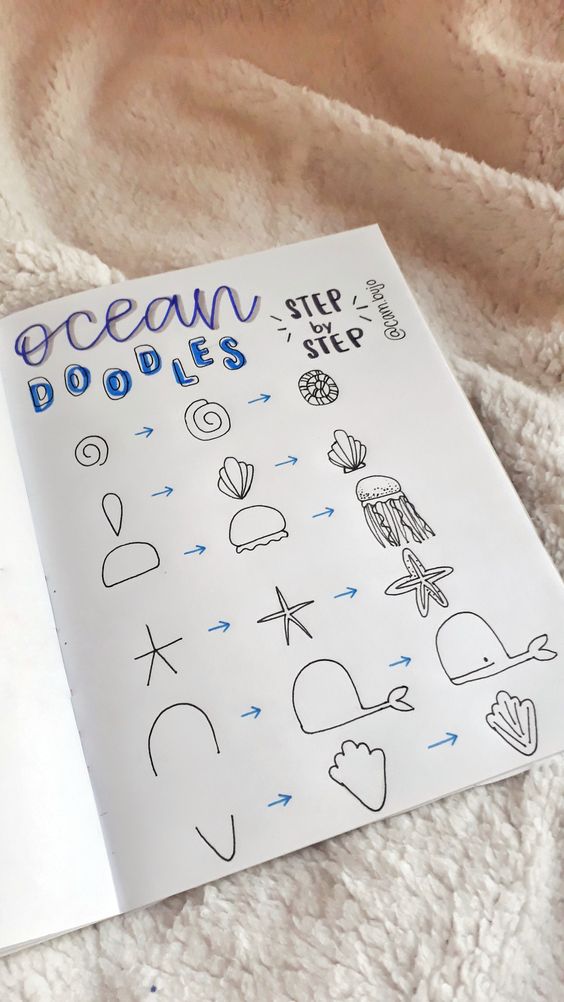 ocean
DOODLES
STEP
by
STEP
@cam.byjo